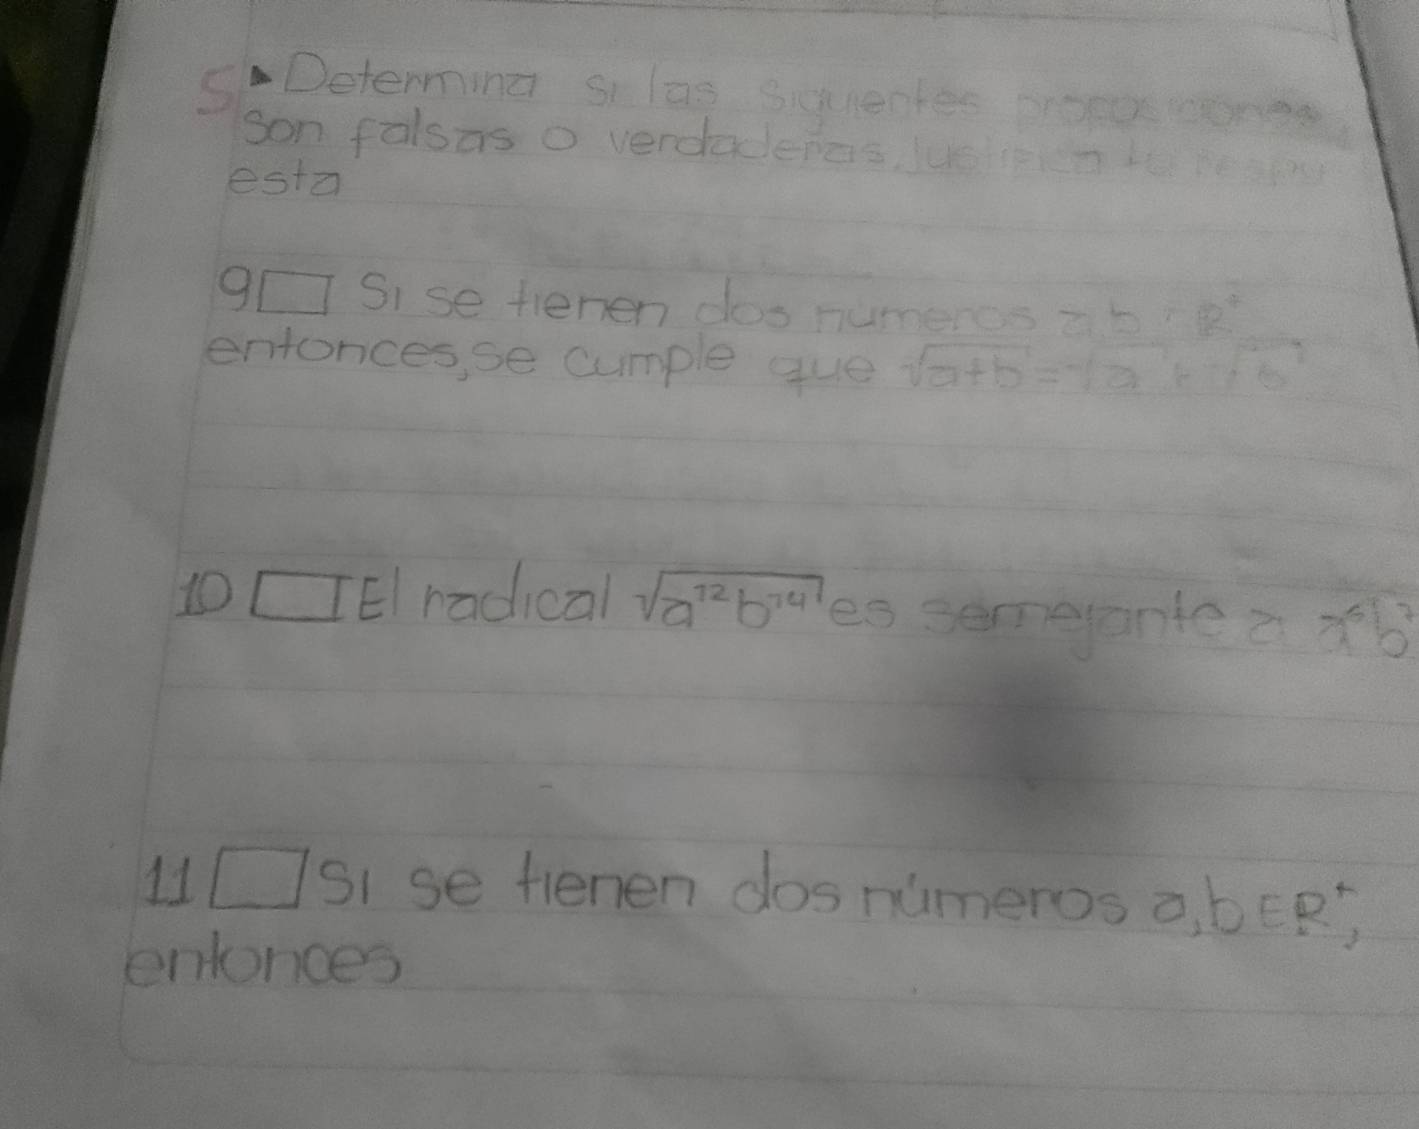 5▸Determina si las siguientes proposiciones
son falsas o verdaderas. Justifica tu respu
esta
9□ Si se tienen dos numeros a b R⁺
entonces, se cumple que √a+b = √a + √b
10 □ El radical √a¹²b¹⁴ es semejante a
11 □ Si se tienen dos números a,b∈R⁺,
entonces